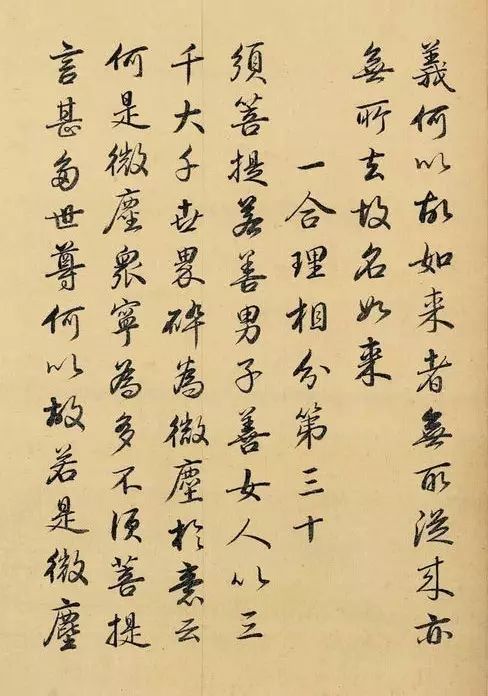 義何以故如来者無所從来亦
無所去故名如来
一合理相分第三十
須菩提若善男子善女人以三
千大千世界碎為微塵於意云
何是微塵衆寧為多不須菩提
言甚多世尊何以故若是微塵